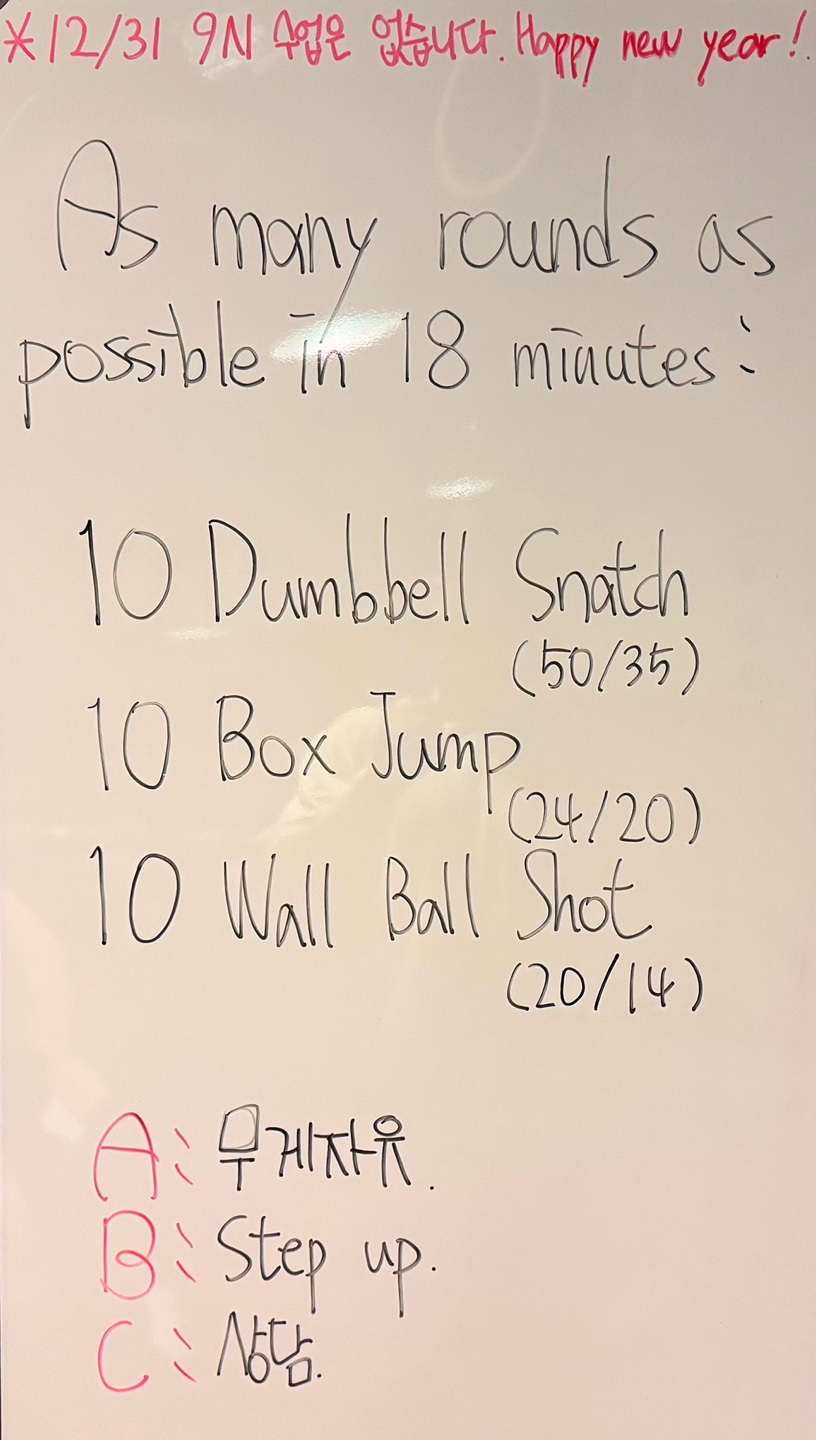 * 12/31 9시 수업은 없습니다. Happy new year!
As many rounds as
possible in 18 minutes:
10 Dumbbell Snatch
(50/35)
10 Box Jump
(24/20)
10 Wall Ball Shot
(20/14)
A: 무게자유.
B: Step up.
C: 상담.